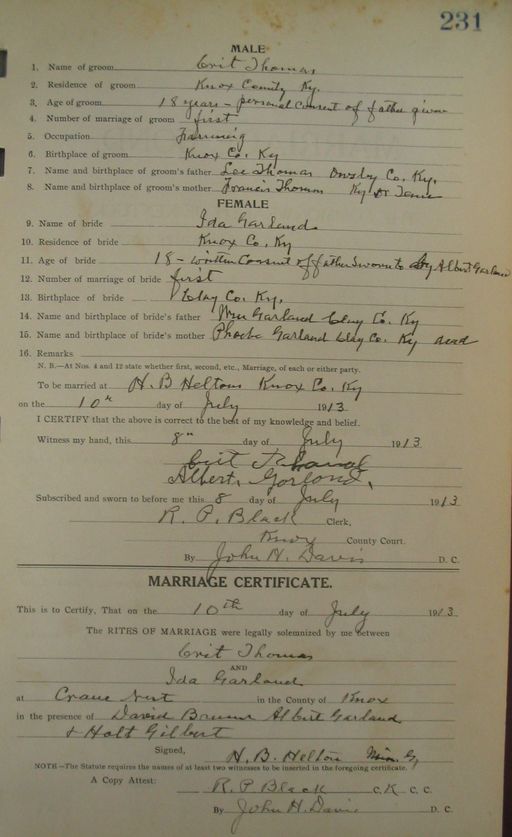 231
MALE
1. Name of groom Crit Thomas
2. Residence of groom Knox County Ky.
3. Age of groom 18 years - personal Consent of father given
4. Number of marriage of groom first
5. Occupation Farming
6. Birthplace of groom Knox Co. Ky
7. Name and birthplace of groom's father Lee Thomas Owsley Co. Ky.
8. Name and birthplace of groom's mother Francis Thomas Ky or Tenn
FEMALE
9. Name of bride Ida Garland
10. Residence of bride Knox Co. Ky
11. Age of bride 18 - written Consent of father Sworn to by Albert Garland
12. Number of marriage of bride first
13. Birthplace of bride Clay Co. Ky.
14. Name and birthplace of bride's father Wm Garland Clay Co. Ky
15. Name and birthplace of bride's mother Phoebe Garland Clay Co. Ky dead
16. Remarks
N. B.—At Nos. 4 and 12 state whether first, second, etc., Marriage, of each or either party.
To be married at H. B Heltons Knox Co. Ky
on the 10" day of July 1913.
I CERTIFY that the above is correct to the best of my knowledge and belief.
Witness my hand, this 8" day of July 1913
Crit
Albert Garland,
Subscribed and sworn to before me this 8 day of July 1913
R. P. Black Clerk,
Knox County Court.
By John H. Davis D. C.
MARRIAGE CERTIFICATE.
This is to Certify, That on the 10th day of July 1913.
The RITES OF MARRIAGE were legally solemnized by me between
Crit Thomas
AND
Ida Garland
at Crane Nest in the County of Knox
in the presence of David Albert Garland
& Holt Gilbert
Signed, H. B. Helton
NOTE—The Statute requires the names of at least two witnesses to be inserted in the foregoing certificate.
A Copy Attest: R. P Black C. K C. C.
By John H. Davis D. C.